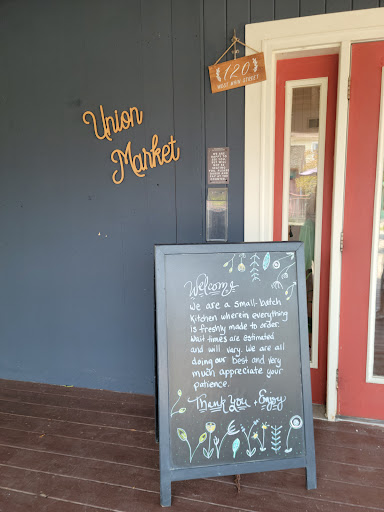 120
WEST MAIN STREET
Union
Market
Welcome
We are a small-batch
Kitchen wherein everything
is freshly made to order.
Wait times are estimated
and will vary. We are all
doing our best and very
much appreciate your
patience.
Thank You + Enjoy